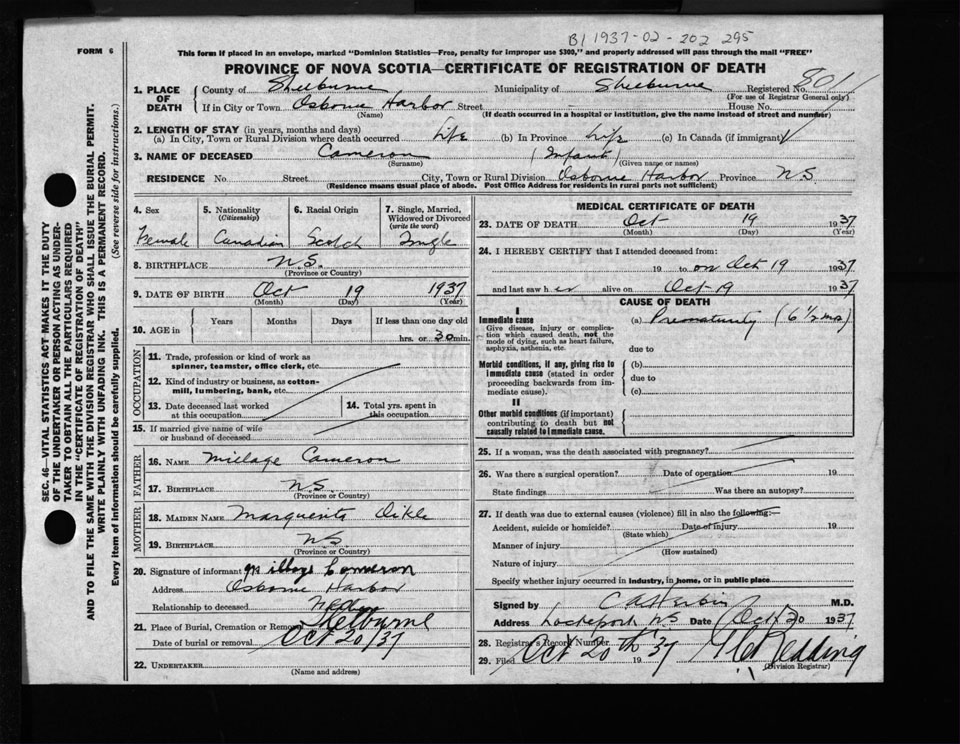 B1 1937-02-202 295
FORM 6
This form if placed in an envelope, marked "Dominion Statistics—Free, penalty for improper use $300," and properly addressed will pass through the mail "FREE"
PROVINCE OF NOVA SCOTIA—CERTIFICATE OF REGISTRATION OF DEATH
1. PLACE OF DEATH
County of Shelburne Municipality of Shelburne Registered No. 801
(For use of Registrar General only)
If in City or Town Osborne Harbor Street House No.
(Name) (If death occurred in a hospital or institution, give the name instead of street and number)
2. LENGTH OF STAY (in years, months and days)
(a) In City, Town or Rural Division where death occurred Life (b) In Province Life (c) In Canada (if immigrant)
3. NAME OF DECEASED Cameron (Infant)
(Surname) (Given name or names)
RESIDENCE No. Street City, Town or Rural Division Osborne Harbor Province N.S.
(Residence means usual place of abode. Post Office Address for residents in rural parts not sufficient)
4. Sex 5. Nationality (Citizenship) 6. Racial Origin 7. Single, Married, Widowed or Divorced (write the word)
Female Canadian Scotch Single
8. BIRTHPLACE N.S.
(Province or Country)
9. DATE OF BIRTH Oct 19 1937
(Month) (Day) (Year)
10. AGE in Years Months Days If less than one day old
hrs. or 30 min.
OCCUPATION
11. Trade, profession or kind of work as spinner, teamster, office clerk, etc.
12. Kind of industry or business, as cotton-mill, lumbering, bank, etc.
13. Date deceased last worked at this occupation
14. Total yrs. spent in this occupation
15. If married give name of wife or husband of deceased
FATHER
16. NAME Millage Cameron
17. BIRTHPLACE N.S.
(Province or Country)
MOTHER
18. MAIDEN NAME Marguerite Oikle
19. BIRTHPLACE N.S.
(Province or Country)
20. Signature of informant Millage Cameron
Address Osborne Harbor
Relationship to deceased
21. Place of Burial, Cremation or Removal Shelburne
Date of burial or removal Oct 20/37
22. UNDERTAKER
(Name and address)
MEDICAL CERTIFICATE OF DEATH
23. DATE OF DEATH Oct 19 1937
(Month) (Day) (Year)
24. I HEREBY CERTIFY that I attended deceased from:
19 to on Oct 19 1937
and last saw her alive on Oct 19 1937
CAUSE OF DEATH
I
Immediate cause (a) Prematurity (6 1/2 mos)
Give disease, injury or complication which caused death, not the mode of dying, such as heart failure, asphyxia, asthenia, etc.
due to
Morbid conditions, if any, giving rise to immediate cause (stated in order proceeding backwards from immediate cause).
(b)
due to
(c)
II
Other morbid conditions (if important) contributing to death but not causally related to immediate cause.
25. If a woman, was the death associated with pregnancy?
26. Was there a surgical operation? Date of operation 19
State findings Was there an autopsy?
27. If death was due to external causes (violence) fill in also the following:—
Accident, suicide or homicide? Date of injury 19
(State which)
Manner of injury
(How sustained)
Nature of injury
Specify whether injury occurred in industry, in home, or in public place
Signed by M.D.
Address Lockeport N.S. Date Oct 20 1937
28. Registrar's Record Number
29. Filed Oct 20th 37 19 Redding
(Division Registrar)
SEC. 46—VITAL STATISTICS ACT MAKES IT THE DUTY
OF THE UNDERTAKER OR PERSON ACTING AS UNDER-
TAKER TO OBTAIN ALL THE PARTICULARS REQUIRED
IN THE "CERTIFICATE OF REGISTRATION OF DEATH"
AND TO FILE THE SAME WITH THE DIVISION REGISTRAR WHO SHALL ISSUE THE BURIAL PERMIT.
WRITE PLAINLY WITH UNFADING INK. THIS IS A PERMANENT RECORD.
Every item of information should be carefully supplied. (See reverse side for instructions.)